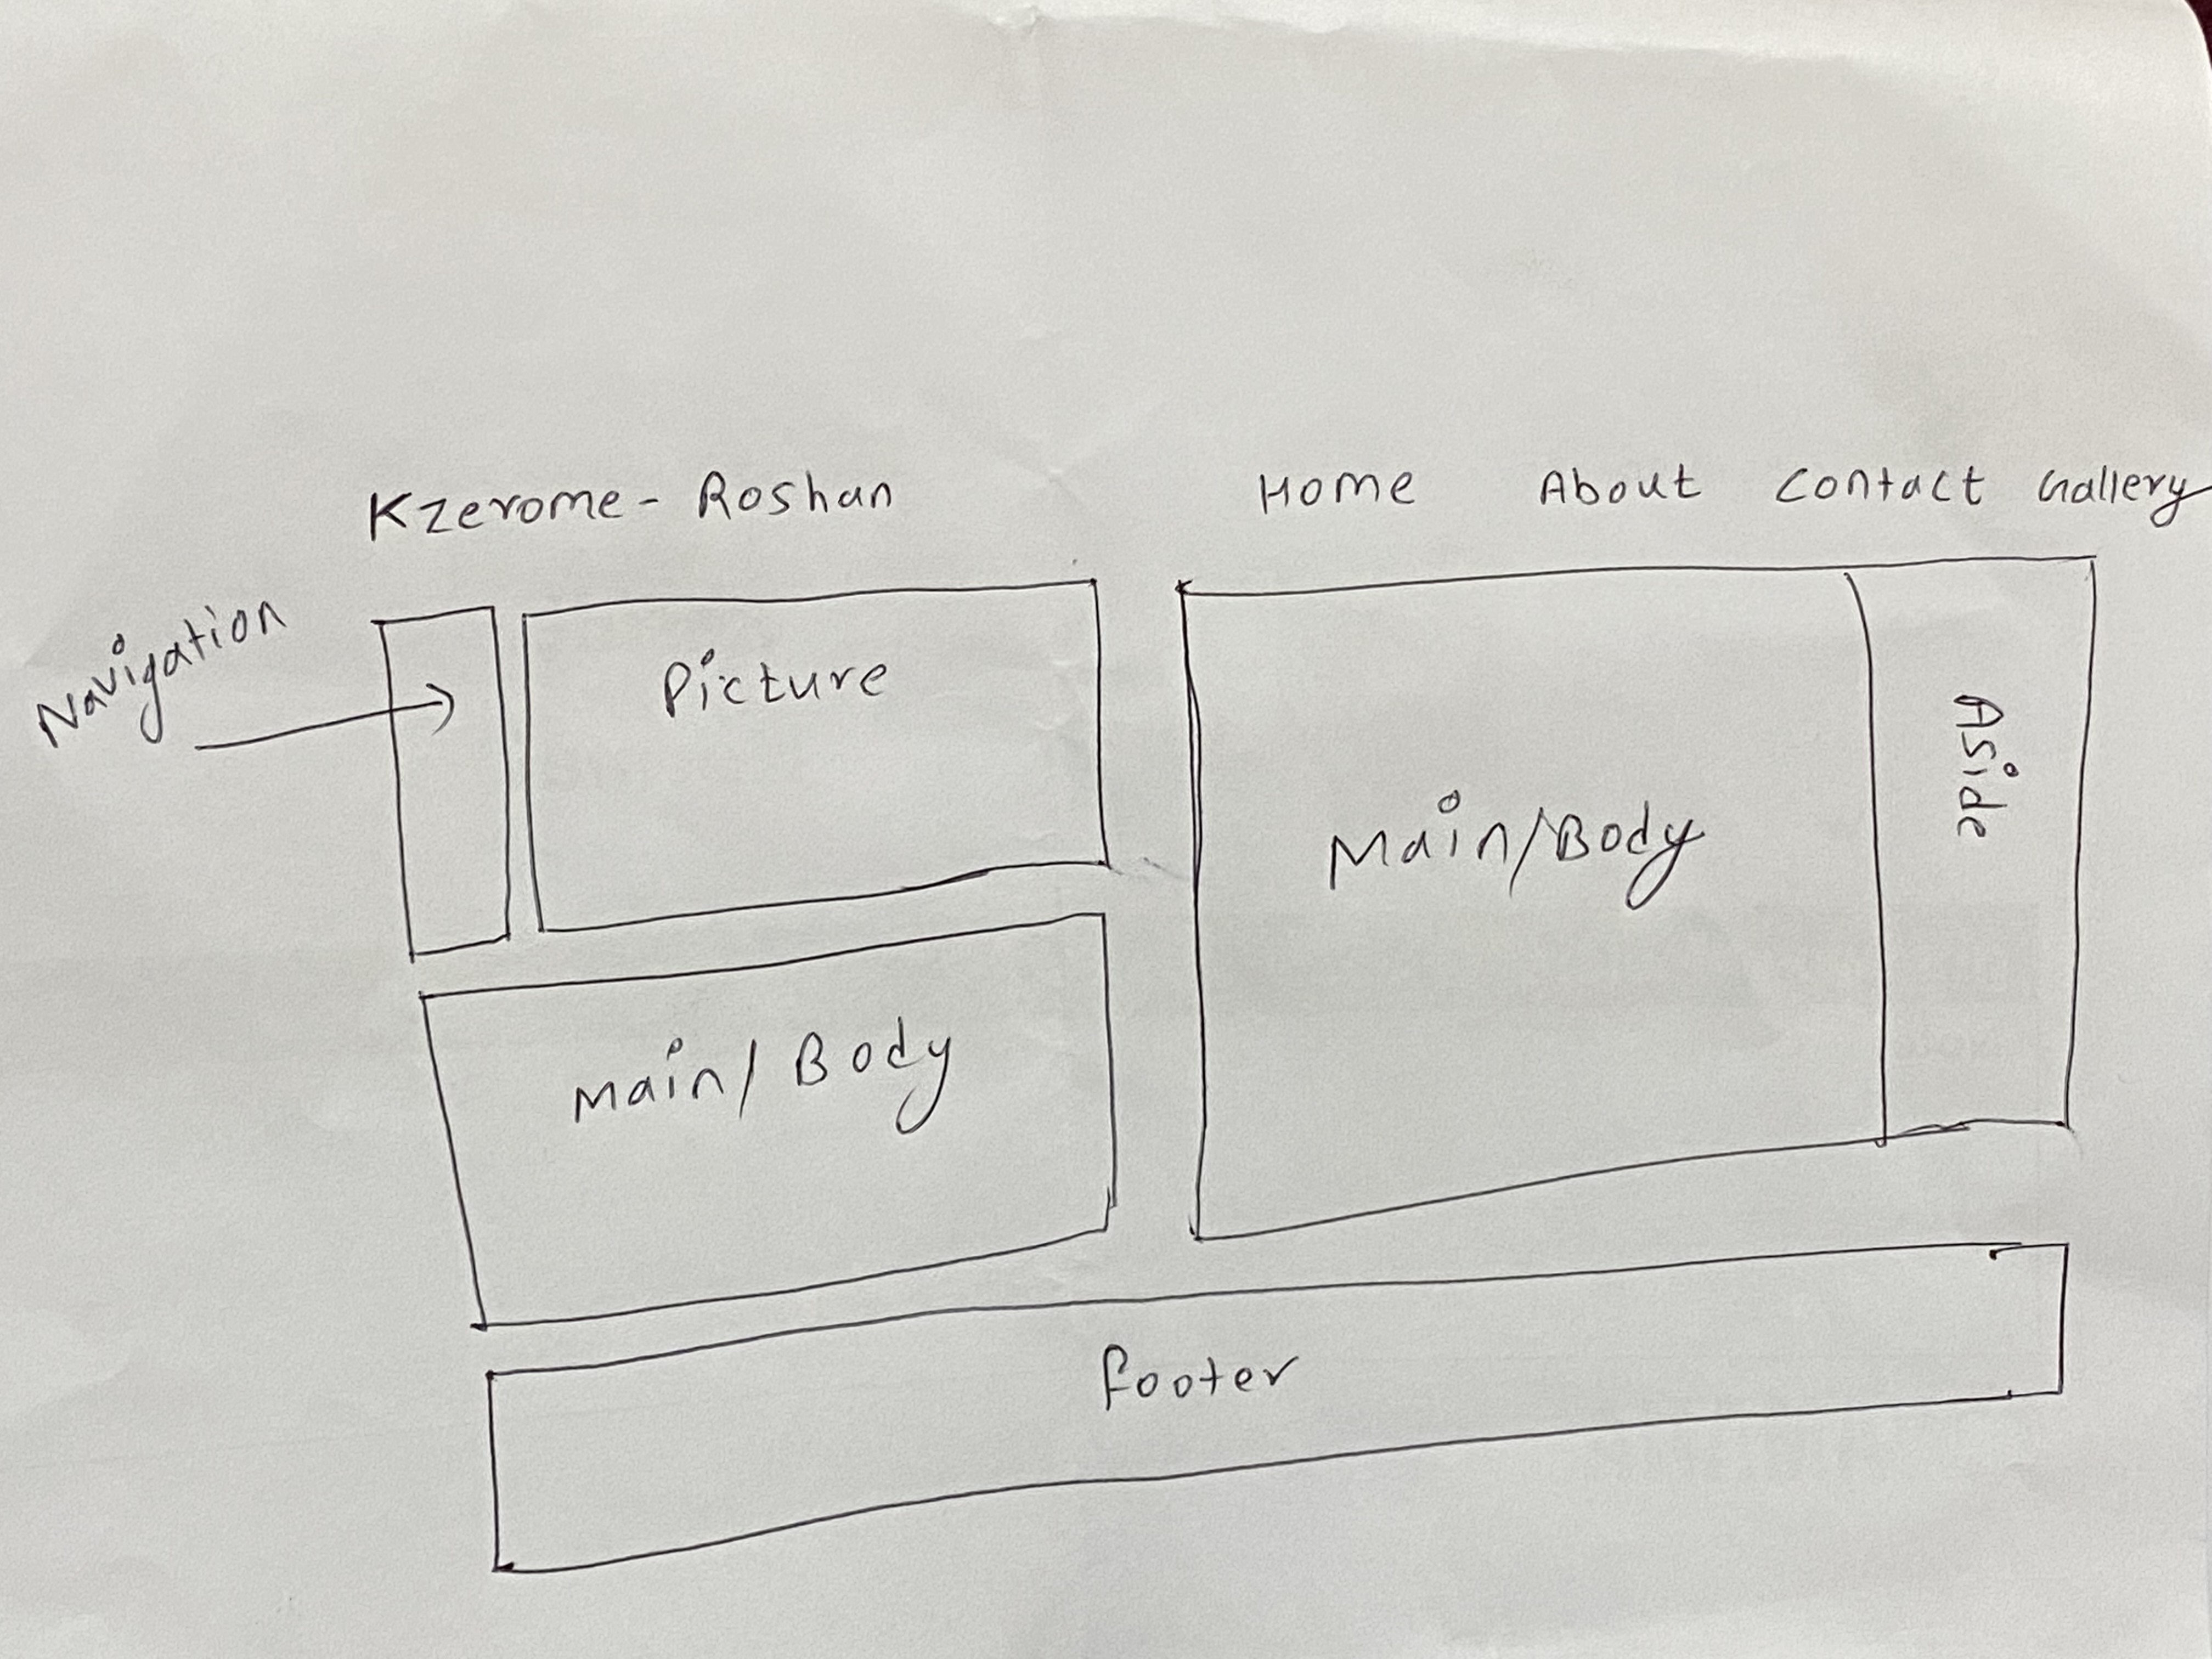 Kzerome - Roshan
Home About Contact Gallery
Navigation
Picture
Main/Body
Aside
Main/Body
footer